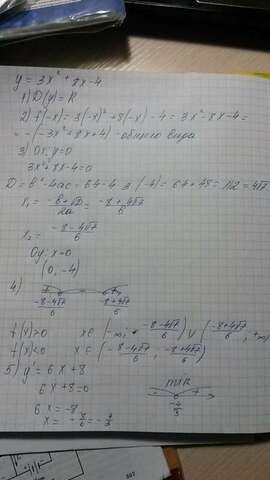 y = 3x² + 8x - 4
1) D(y) = R
2) f(-x) = 3(-x)² + 8(-x) - 4 = 3x² - 8x - 4 =
= -(-3x² + 8x + 4) - общего вида
3) Ox: y=0
3x² + 8x - 4 = 0
D = b² - 4ac = 64 - 4·3·(-4) = 64 + 48 = 112 = 4√7
x₁ = (-b+√D)/2a = (-8+4√7)/6
x₂ = (-8-4√7)/6
Oy: x=0
(0, -4)
4)
(-8-4√7)/6 (-8+4√7)/6
f(x)>0 x∈(-∞; (-8-4√7)/6) ∪ ((-8+4√7)/6; +∞)
f(x)<0 x∈((-8-4√7)/6; (-8+4√7)/6)
5) y' = 6x + 8
6x + 8 = 0
6x = -8
x = -8/6 = -4/3
min
-4/3